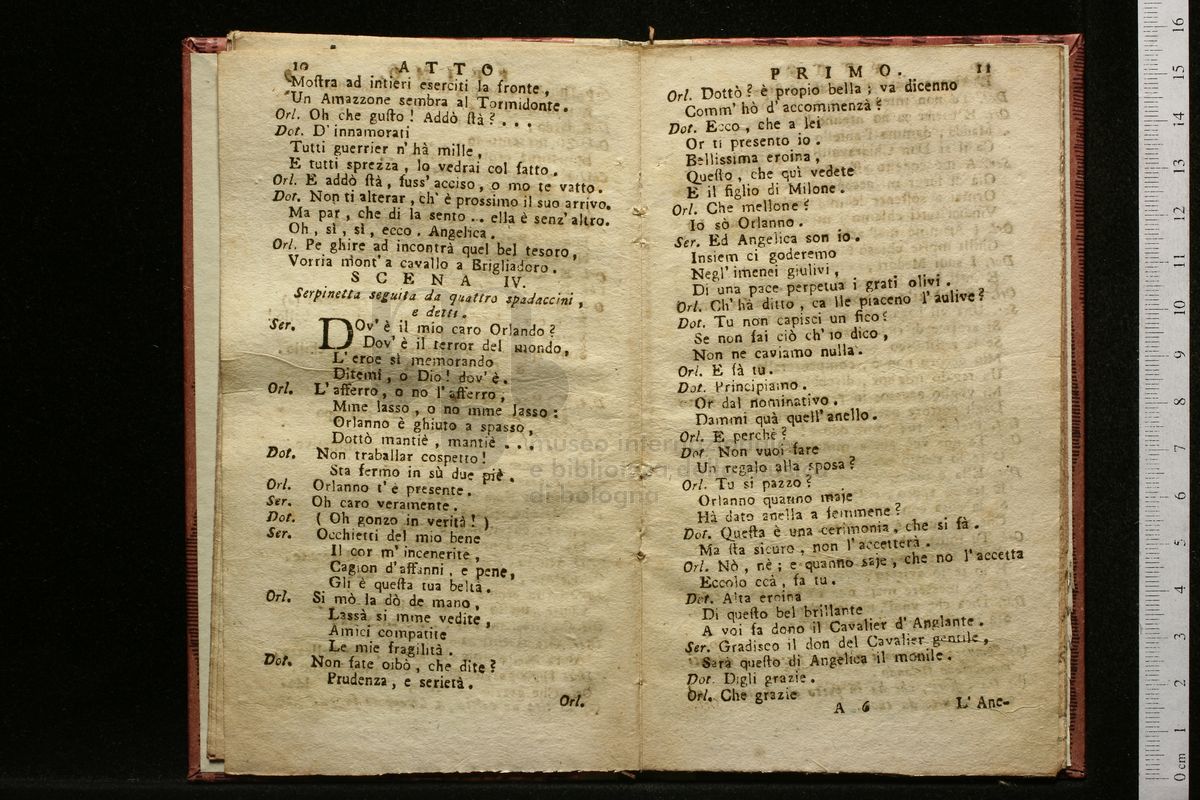 10 ATTO
Moſtra ad intieri eserciti la fronte,
Un Amazzone sembra al Tormidonte.
Orl. Oh che guſto! Addò ſtà? . . .
Dot. D'innamorati
Tutti guerrier n'hà mille,
E tutti sprezza, lo vedrai col fatto.
Orl. E addò ſtà, fuss' acciso, o mo te vatto.
Dot. Non ti alterar, ch' è prossimo il suo arrivo.
Ma par, che di la sento .. ella è senz' altro.
Oh, sì, sì, ecco. Angelica.
Orl. Pe ghire ad incontrà quel bel tesoro,
Vorria mont' a cavallo a Brigliadoro.
SCENA IV.
Serpinetta seguita da quattro spadaccini,
e detti.
Ser. DOv' è il mio caro Orlando?
Dov' è il terror del mondo,
L' eroe sì memorando
Ditemi, o Dio! dov' è.
Orl. L' afferro, o no l' afferro,
Mme lasso, o no mme lasso:
Orlanno è ghiuto a spasso,
Dottò mantiè, mantiè . . .
Dot. Non traballar cospetto!
Sta fermo in sù due piè.
Orl. Orlanno t' è presente.
Ser. Oh caro veramente.
Dot. ( Oh gonzo in verità! )
Ser. Occhietti del mio bene
Il cor m' incenerite,
Cagion d'affanni, e pene,
Gli è queſta tua beltà.
Orl. Si mò la dò de mano,
Lassà si mme vedite,
Amici compatite
Le mie fragilità.
Dot. Non fate oibò, che dite?
Prudenza, e serietà.
Orl.
PRIMO. 11
Orl. Dottò? è propio bella; va dicenno
Comm' hò d' accommenzà?
Dot. Ecco, che a lei
Or ti presento io.
Bellissima eroina,
Queſto, che quì vedete
E il figlio di Milone.
Orl. Che mellone?
Io sò Orlanno.
Ser. Ed Angelica son io.
Insiem ci goderemo
Negl' imenei giulivi,
Di una pace perpetua i grati olivi.
Orl. Ch' hà ditto, ca lle piaceno l' aulive?
Dot. Tu non capisci un fico?
Se non fai ciò ch' io dico,
Non ne caviamo nulla.
Orl. E fà tu.
Dot. Principiamo.
Or dal nominativo.
Dammi quà quell' anello.
Orl. E perchè?
Dot. Non vuoi fare
Un regalo alla sposa?
Orl. Tu si pazzo?
Orlanno quanno maje
Hà dato anella a femmene?
Dot. Queſta è una cerimonia, che si fà.
Ma ſta sicuro, non l' accetterà.
Orl. Nò, nè; e quanno saje, che no l' accetta
Eccolo ccà, fa tu.
Dot. Alta eroina
Di queſto bel brillante
A voi fa dono il Cavalier d' Anglante.
Ser. Gradisco il don del Cavalier gentile,
Sarà queſto di Angelica il monile.
Dot. Digli grazie.
Orl. Che grazie
A 6 L' Ane-
museo internazionale
e biblioteca della musica
di bologna
16
15
14
13
12
11
10
9
8
7
6
5
4
3
2
1
0 cm